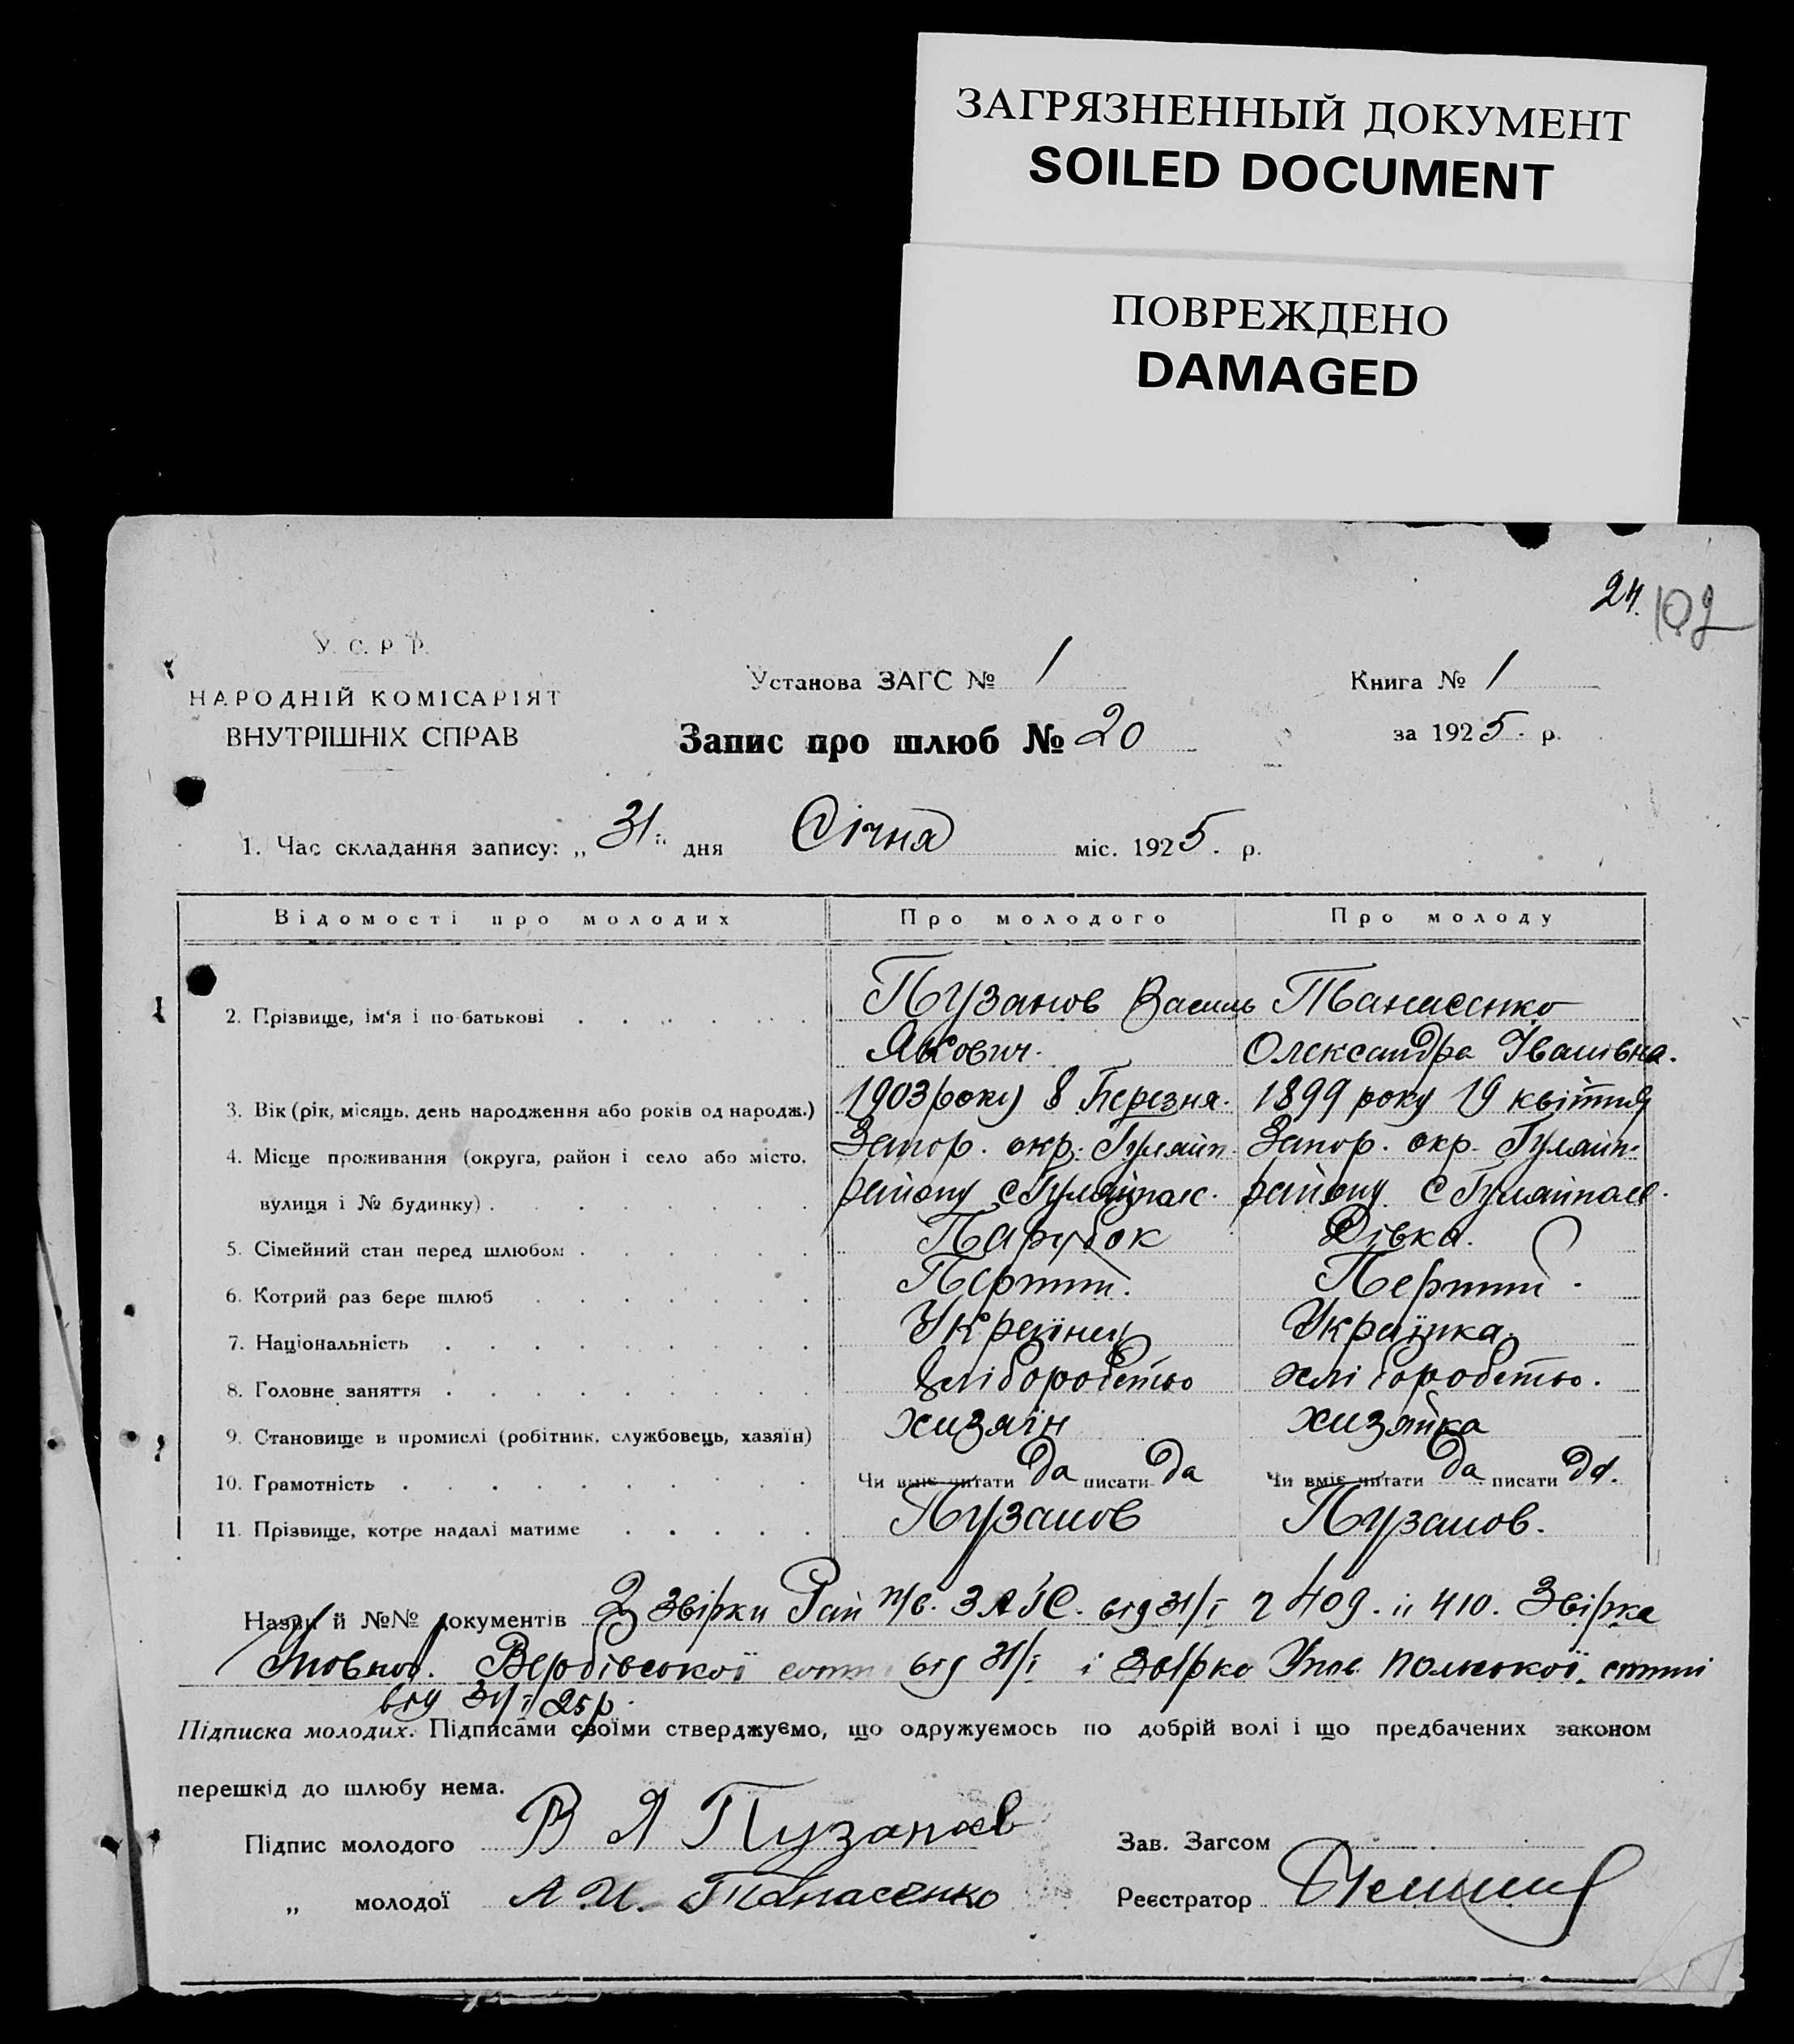 ЗАГРЯЗНЕННЫЙ ДОКУМЕНТ
SOILED DOCUMENT
ПОВРЕЖДЕНО
DAMAGED
24. 102
У. С. Р. Р.
НАРОДНІЙ КОМІСАРІЯТ
ВНУТРІШНІХ СПРАВ
Установа ЗАГС № 1
Книга № 1
Запис про шлюб № 20
за 1925 р.
1. Час складання запису: „31" дня Січня міс. 1925. р.
Відомості про молодих Про молодого Про молоду
2. Прізвище, ім'я і по-батькові Пузанов Василь Танасенко
Якович. Олександра Івановна.
3. Вік (рік, місяць, день народження або років од народж.) 1903 року 8 Березня. 1899 року 19 квітня
4. Місце проживання (округа, район і село або місто, Запор. окр. Гуляйп. Запор. окр. Гуляйп.
вулиця і № будинку) району с Гуляйполе. району с Гуляйполе.
5. Сімейний стан перед шлюбом Парубок Дівка.
6. Котрий раз бере шлюб Перший. Перший.
7. Національність Украінец Украінка.
8. Головне заняття Хліборобство хліборобство.
9. Становище в промислі (робітник, службовець, хазяїн) хизяін хизяйка
10. Грамотність Чи вміє читати да писати да Чи вміє читати да писати да.
11. Прізвище, котре надалі матиме Пузанов Пузанов.
Назви й №№ документів 2 Звірки Рай п/в. ЗАГС. від 31/I 2 409. ії 410. Звірка
Уповнов. Вербівської сотні від 31/I і Звірка Упов. Польської сотні
від 31/I 25 р.
Підписка молодих. Підписами своїми стверджуємо, що одружуємось по добрій волі і що предбачених законом
перешкід до шлюбу нема.
Підпис молодого В Я Пузанов Зав. Загсом
„ молодої А. И. Танасенко Реєстратор